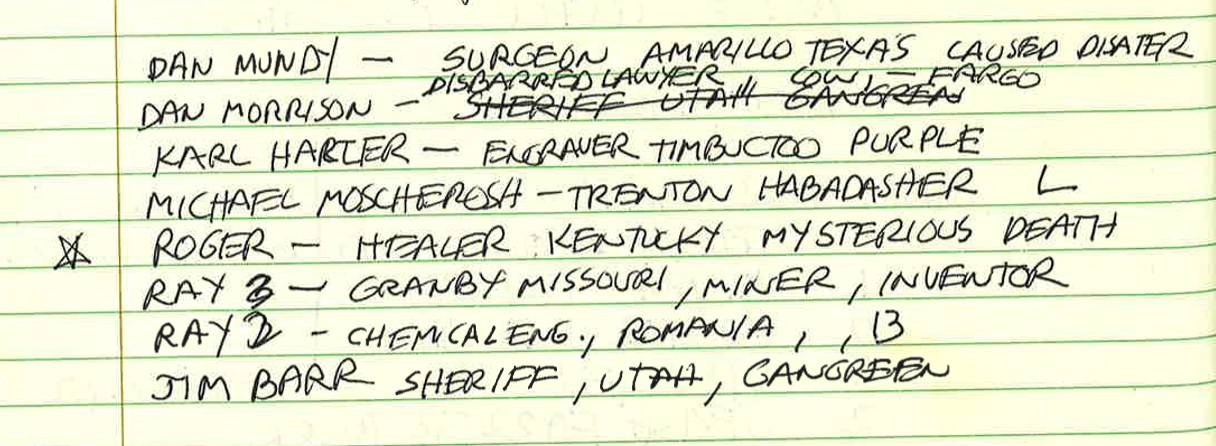 DAN MUNDY — SURGEON AMARILLO TEXAS CAUSED DISATER
DISBARRED LAWYER, COW, — FARGO
DAN MORRISON — SHERIFF UTAH GANGREN
KARL HARTER — ENGRAVER TIMBUCTOO PURPLE
MICHAEL MOSCHEROSH — TRENTON HABADASHER L
ROGER — HEALER KENTUCKY MYSTERIOUS DEATH
RAY 3 — GRANBY MISSOURI, MINER, INVENTOR
RAY 2 - CHEMICAL ENG., ROMANIA, , 13
JIM BARR SHERIFF, UTAH, GANGREEN